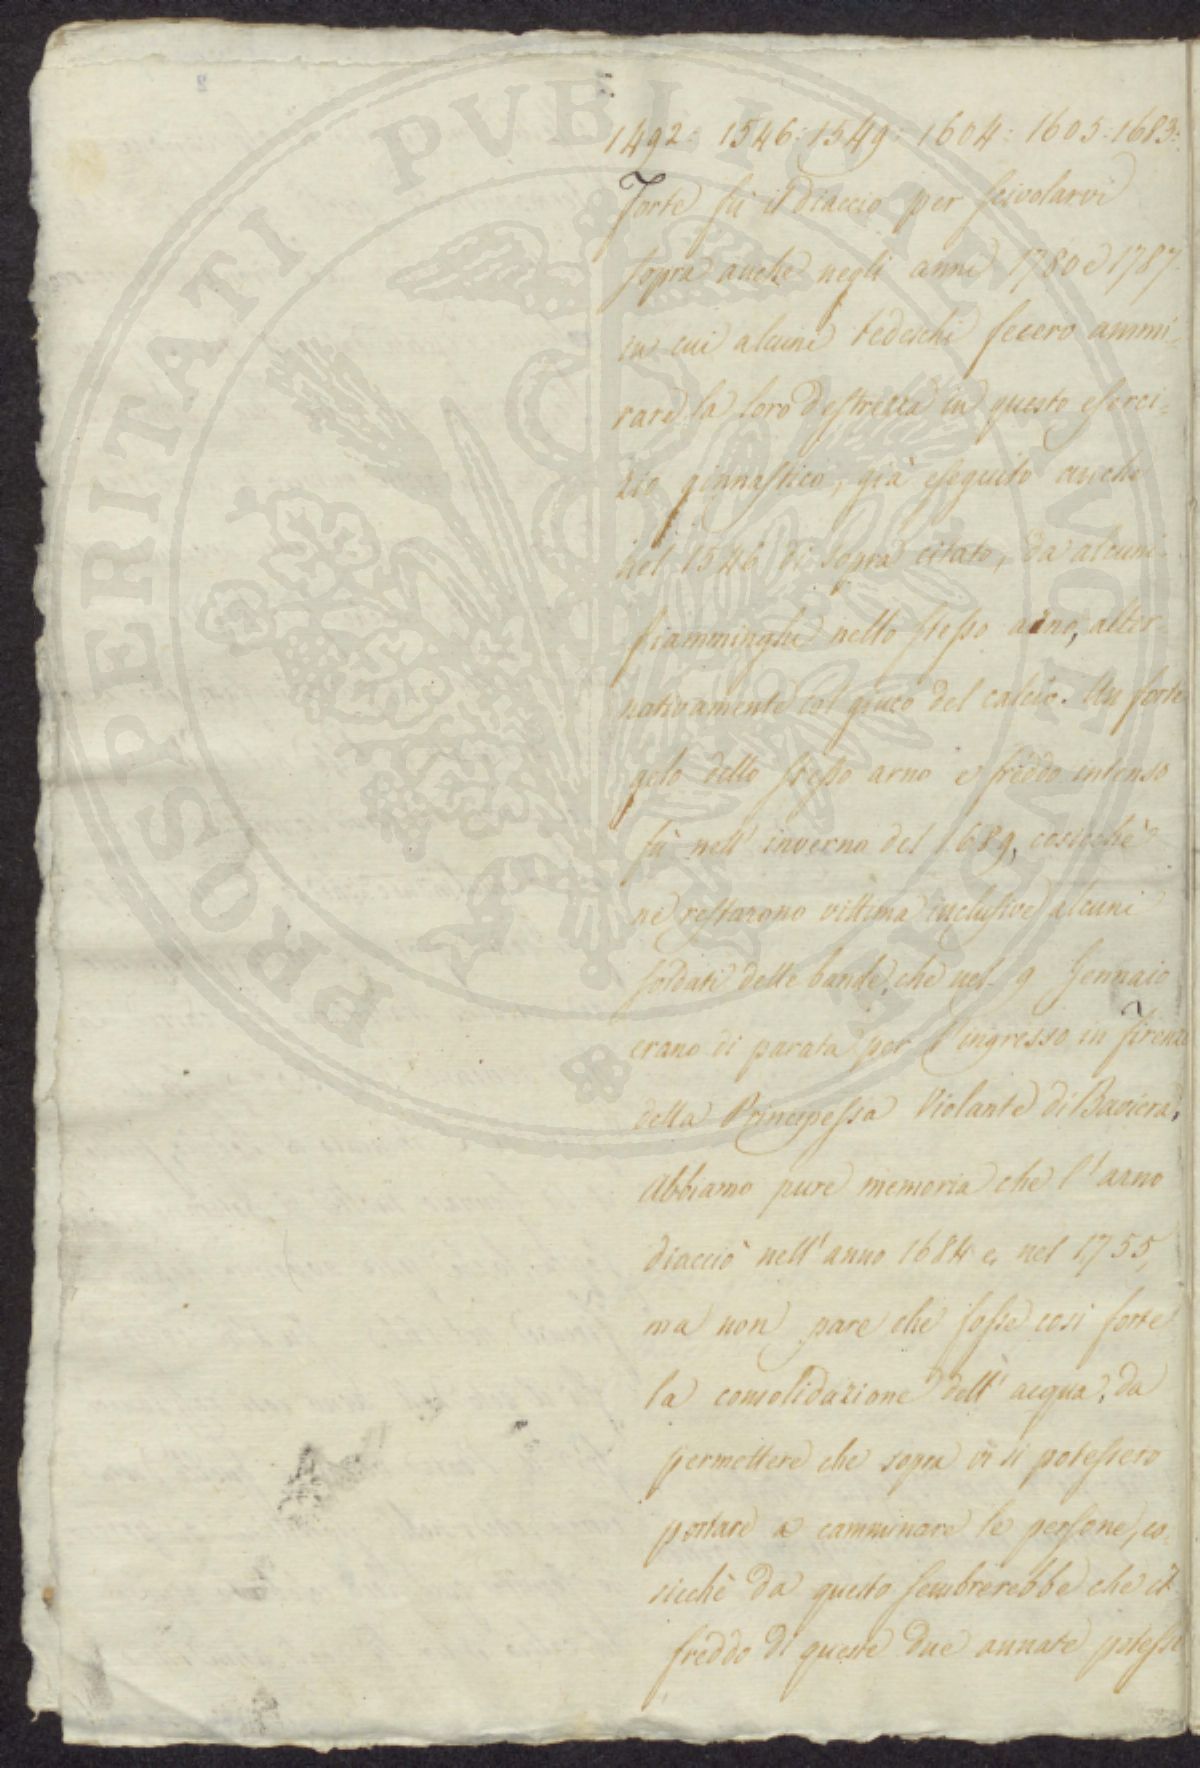 1492: 1546: 1549: 1604: 1605: 1683:
Forte fù il diaccio per scivolarvi
sopra anche negli anni 1780 e 1787
in cui alcuni tedeschi fecero ammi-
rare la loro destrezza in questo eserci-
zio ginnastico, già eseguito anche
nel 1546 di sopra citato, da alcuni
fiamminghi nello stesso arno, alter-
nativamente col giuco del calcio. Un forte
gelo dello stesso arno e freddo intenso
fù nell' inverno del 1689, cosicchè
ne restarono vittima inclusive alcuni
soldati delle bande, che nel 9 Gennaio
erano di parata per l'ingresso in Firenze
della Principessa Violante di Baviera.
Abbiamo pure memoria che l'arno
diacciò nell'anno 1684 e nel 1755,
ma non pare che fosse così forte
la consolidazione dell' acqua, da
permettere che sopra vi si potessero
portare a camminare le persone, co-
sicchè da questo sembrerebbe che il
freddo di queste due annate potesse
PROSPERITATI PVBLICAE AVGENDAE